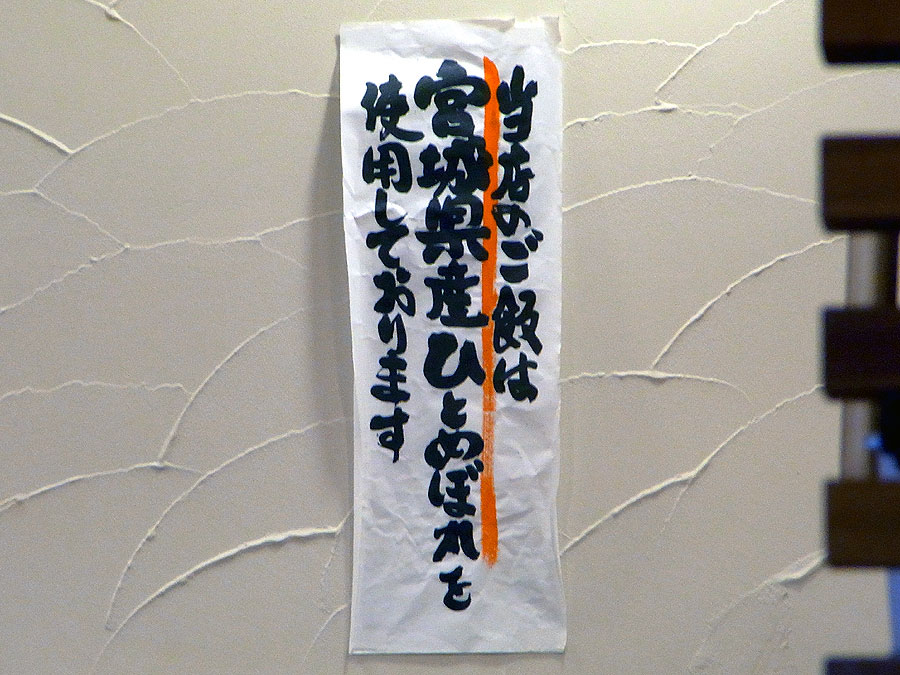 当店のご飯は
宮城県産ひとめぼれを
使用しております